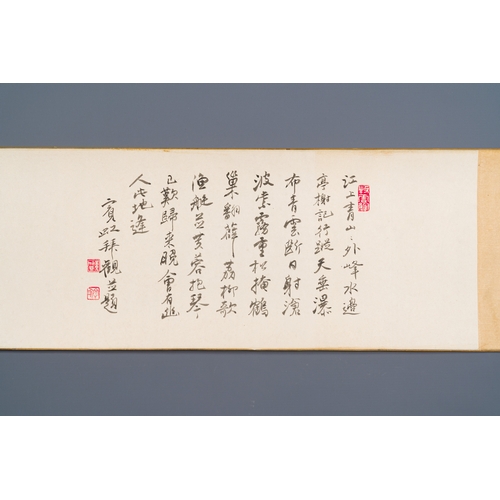 江上青山〻外峰水邊
亭榭記行蹤天垂瀑
布青雲斷日射滄
波紫霧重松掩鶴
巢翻薜荔柳歌
漁艇並芙蓉抱琴
已歎歸來晚會有幽
人此地逢
賓虹拜觀並題